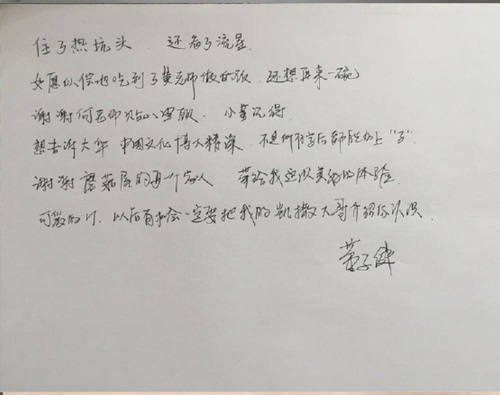 住了热坑头 还看了流星
如愿以偿地吃到了黄老师做的饭 还想再来一碗
谢谢何老师贴心照顾. 小董记得.
想告诉大华 中国文化博大精深 不是所有字后都能加上"子"
谢谢蘑菇屋的每一个家人 带给我这次美好的体验
可爱的H. 以后有机会一定要把我的凯撒大哥介绍你认识.
董子健